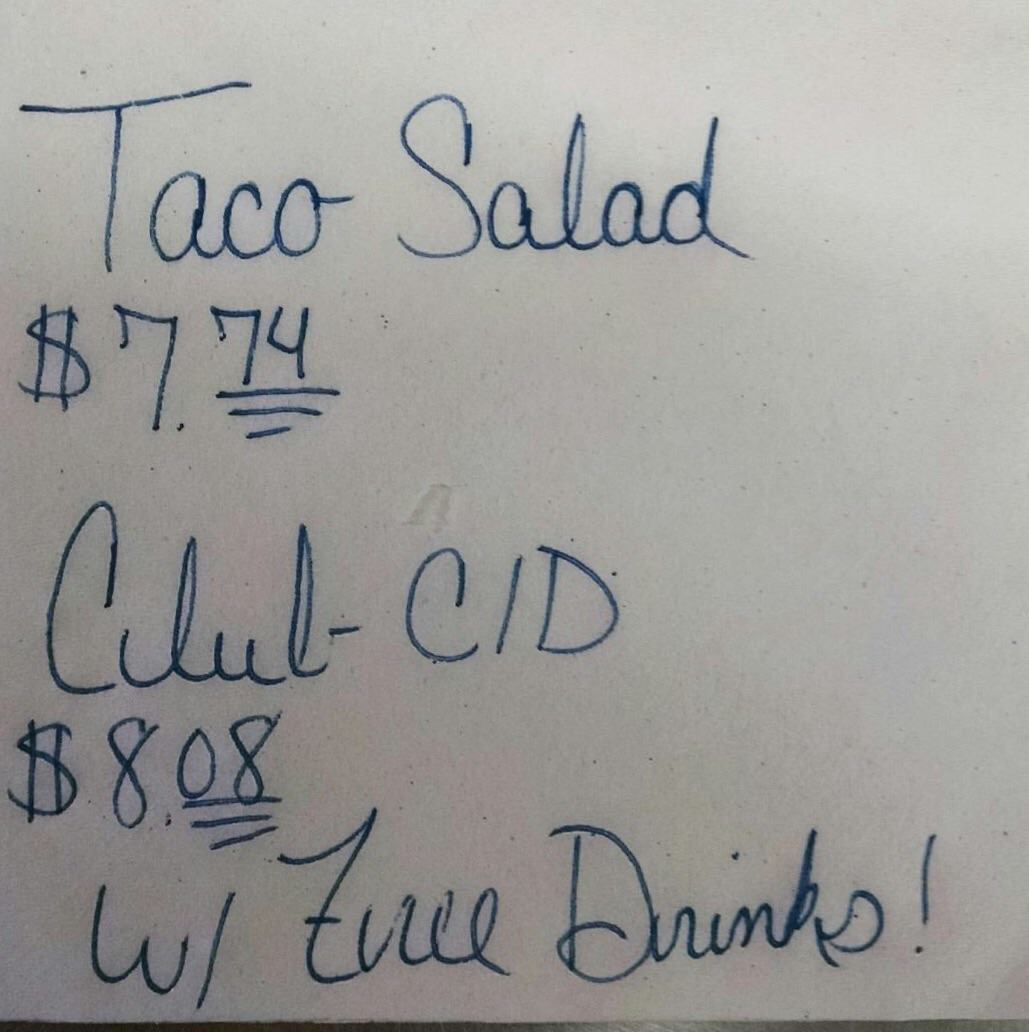 Taco Salad
$7.74
Club-C/D
$8.08
W/ Free Drinks!